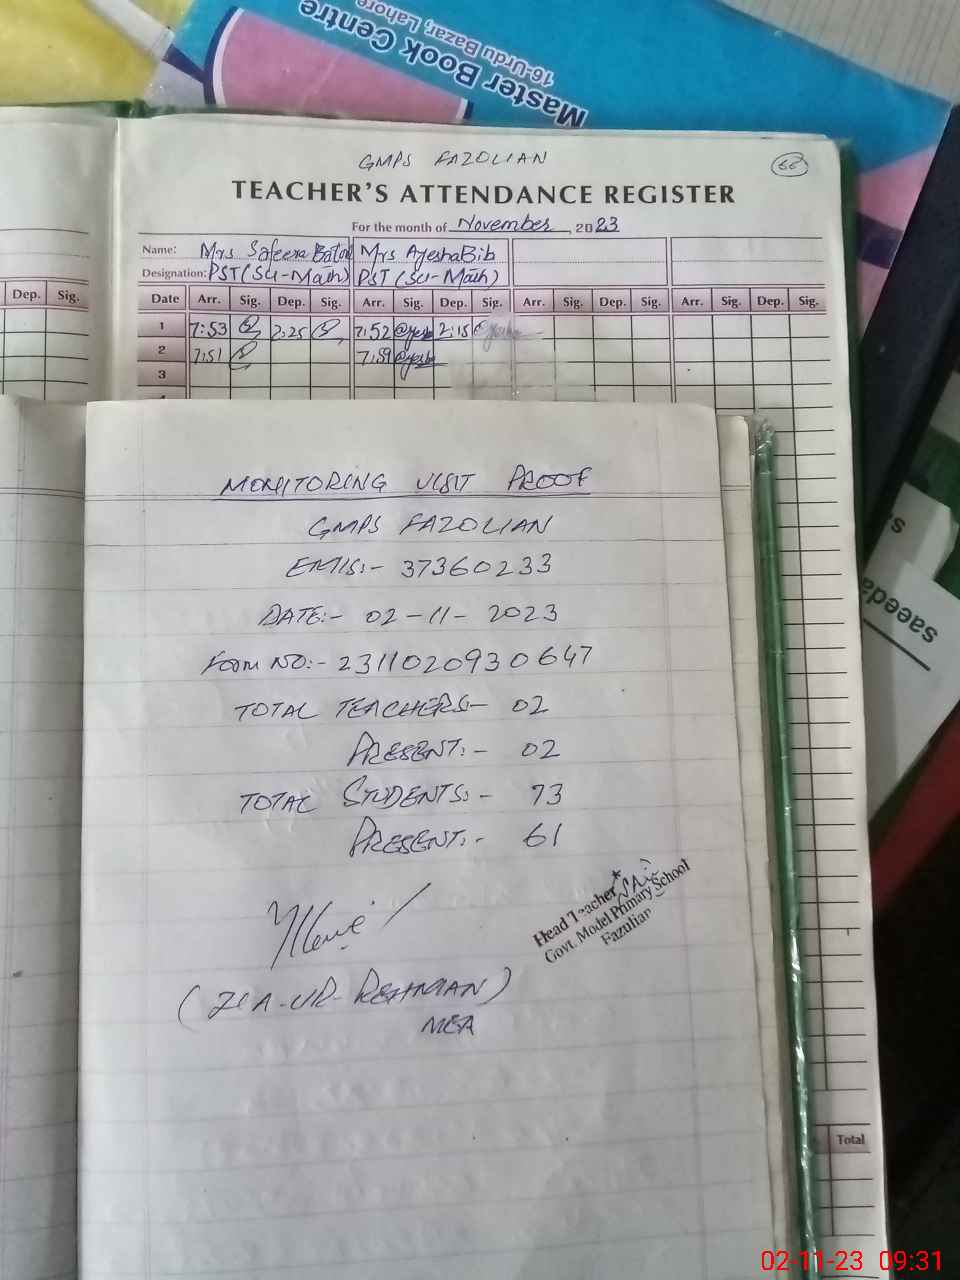 Master Book Centre
16-Urdu Bazar, Lahore
GMPS FAZOLIAN
66
TEACHER'S ATTENDANCE REGISTER
For the month of November, 2023
Name: Mrs Safeera Batool Mrs AyeshaBib
Designation: PST (Sci-Math) PST (Sci-Math)
Dep. Sig. Date Arr. Sig. Dep. Sig. Arr. Sig. Dep. Sig. Arr. Sig. Dep. Sig. Arr. Sig. Dep. Sig.
1 7:53 2:25 7:52 Ayesha 2:15 Ayesha
2 7:51 7:59 Ayesha
3
MONITORING VISIT PROOF
GMPS FAZOLIAN
EMIS:- 37360233
DATE:- 02-11-2023
FORM NO:- 2311020930647
TOTAL TEACHERS:- 02
PRESENT:- 02
TOTAL STUDENTS:- 73
PRESENT:- 61
Head Teacher
Govt. Model Primary School
Fazulian
(ZIA-UR-REHMAN)
MEA
saeeda
Total
02-11-23 09:31